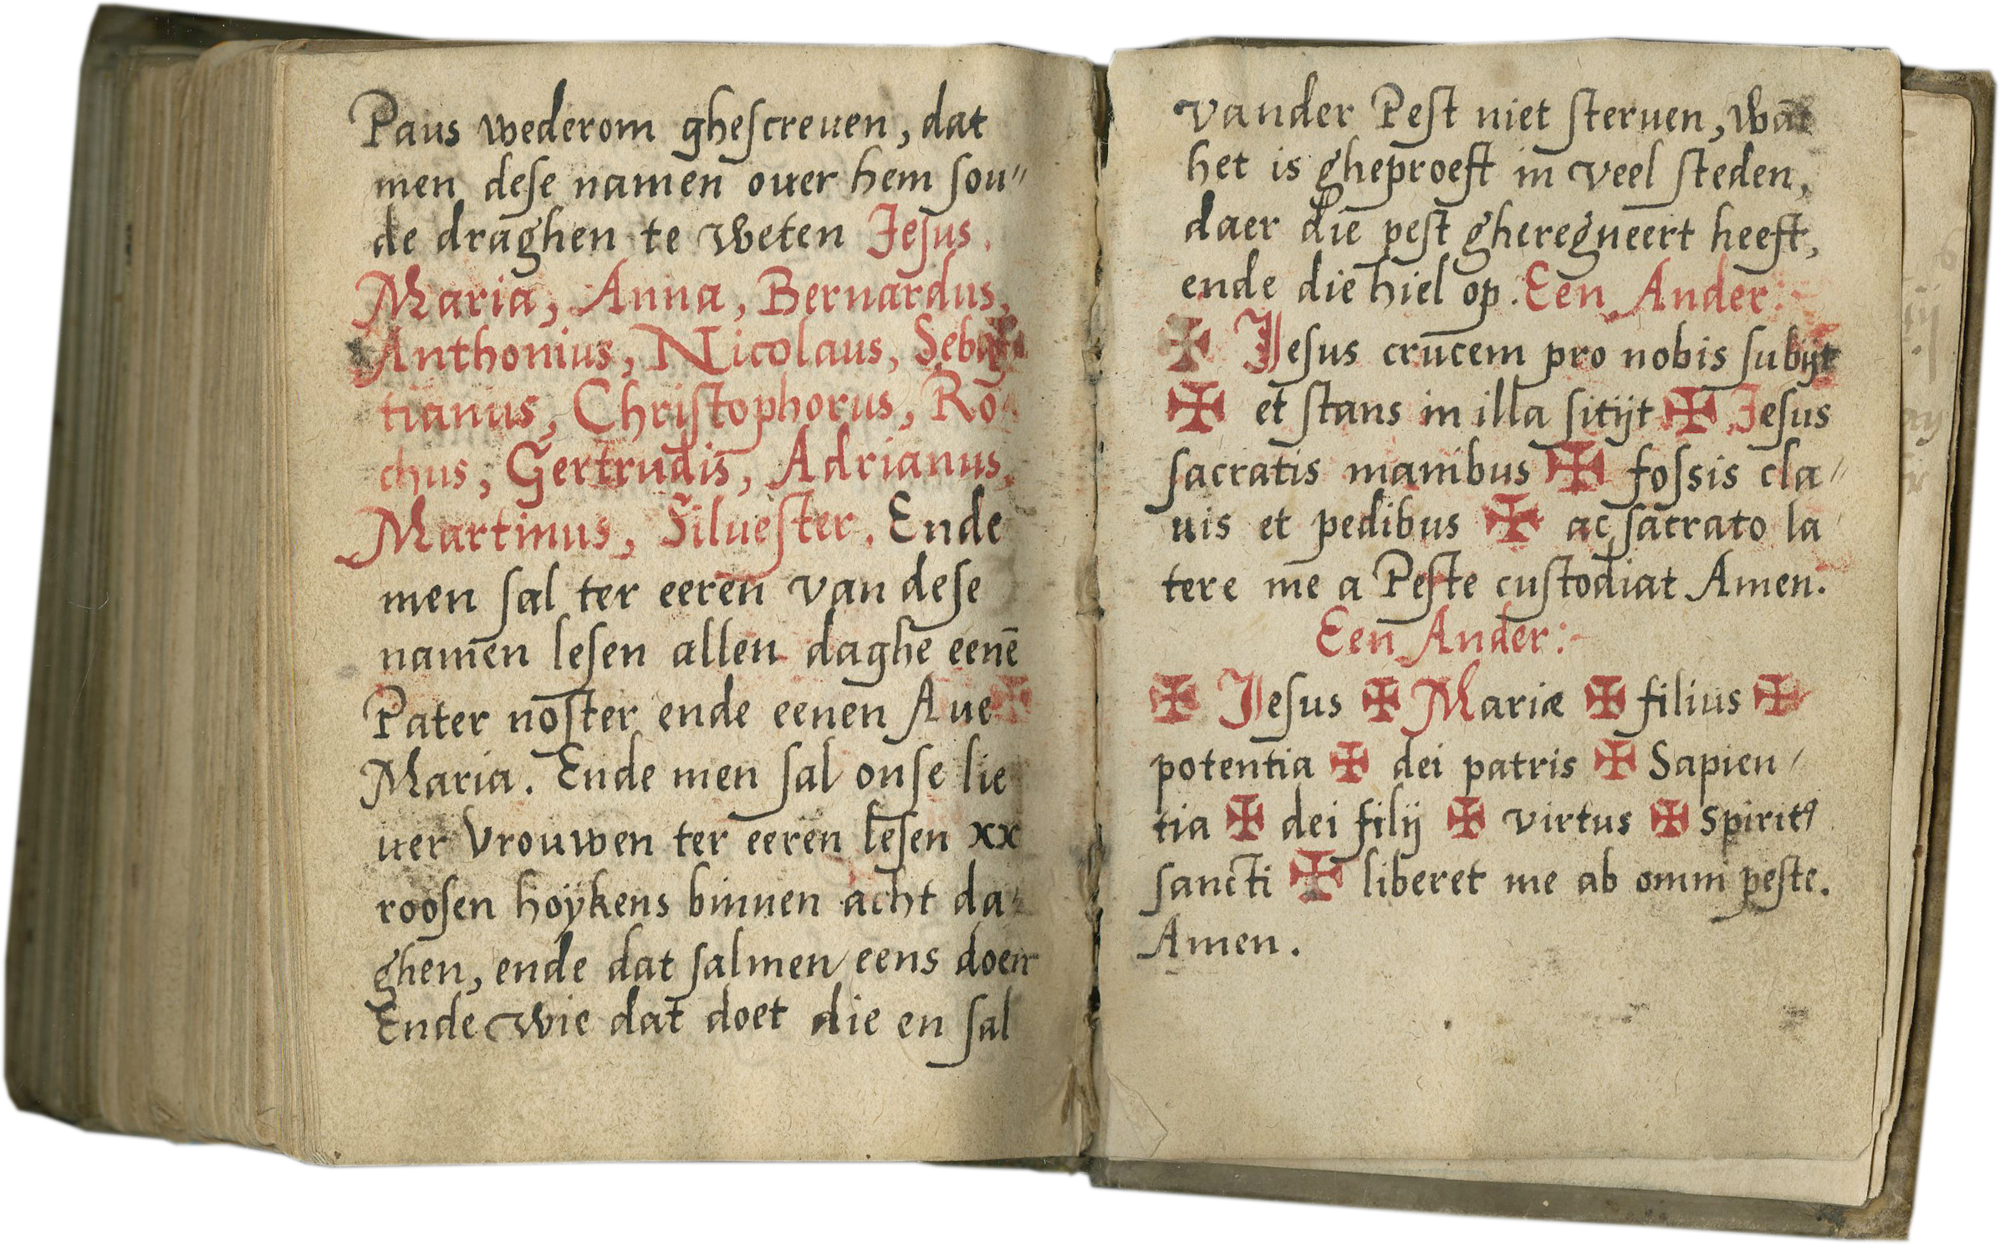 Paus wederom ghescreuen, dat
men dese namen ouer hem sou〃
de draghen te weten Jesus.
Maria, Anna, Bernardus,
Anthonius, Nicolaus, Sebas
tianus, Christophorus, Ro
chus, Gertrudis, Adrianus,
Martinus, Siluester. Ende
men sal ter eeren van dese
namen lesen allen daghe eenē
Pater noster ende eenen Aue
Maria. Ende men sal onse lie
uer Vrouwen ter eeren lesen xx
roosen hoÿkens binnen acht da
ghen, ende dat salmen eens doen
Ende wie dat doet die en sal
vander Pest niet steruen, wāt
het is gheproeft in veel steden,
daer die pest gheregneert heeft,
ende die hiel op. Een Ander:
✠ Jesus crucem pro nobis subijt
✠ et stans in illa sitijt ✠ Jesus
sacratis manibus ✠ fossis cla〃
uis et pedibus ✠ ac sacrato la
tere me a Peste custodiat Amen.
Een Ander:
✠ Jesus ✠ Mariæ ✠ filius ✠
potentia ✠ dei patris ✠ Sapien/
tia ✠ dei filij ✠ virtus ✠ Spirit9
sancti ✠ liberet me ab omni peste.
Amen.